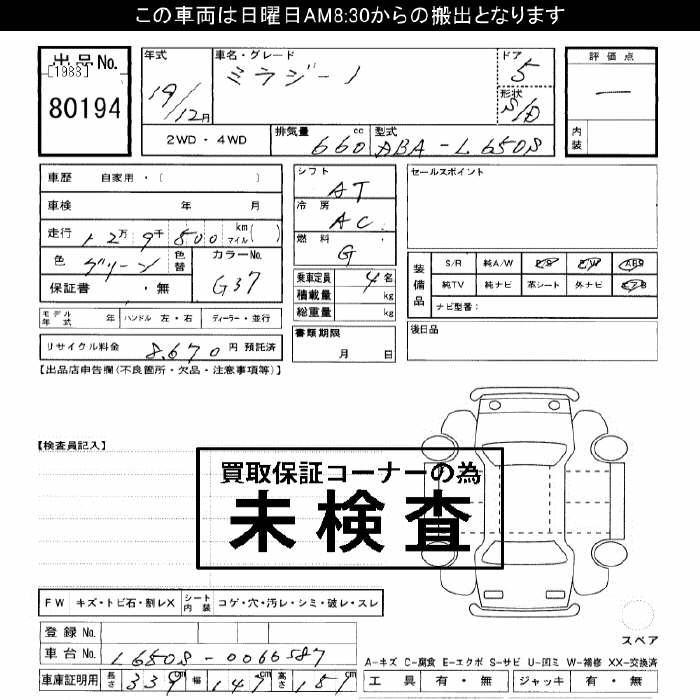 この車両は日曜日AM8:30からの搬出となります
出品No.
[1983]
80194
年式
19/12月
車名・グレード
ミラジーノ
ドア
5
形状
S/D
評価点
ー
内装
2WD・4WD
排気量 660cc
型式 ABA-L650S
車歴 自家用・( )
車検 年 月
走行 12万9千800km マイル( )
色 グリーン 色替
カラーNo. G37
保証書 ・無
モデル年式 年 ハンドル 左・右 ディーラー・並行
リサイクル料金 8,670円 預託済
シフト AT
冷房 AC
燃料 G
乗車定員 4名
積載量 kg
総重量 kg
書類期限
月 日
セールスポイント
装備品
S/R 純A/W P/S P/W ABS
純TV 純ナビ 革シート 外ナビ エアB
ナビ型番:
後日品
【出品店申告欄(不良箇所・欠品・注意事項等)】
【検査員記入】
買取保証コーナーの為
未検査
FW キズ・トビ石・割レX シート内装 コゲ・穴・汚レ・シミ・破レ・スレ
登録No.
車台No. L650S-0066587
車庫証明用 長さ 339cm 幅 147cm 高さ 151cm
スペア
A-キズ C-腐食 E-エクボ S-サビ U-凹ミ W-補修 XX-交換済
工具 有・無 ジャッキ 有・無